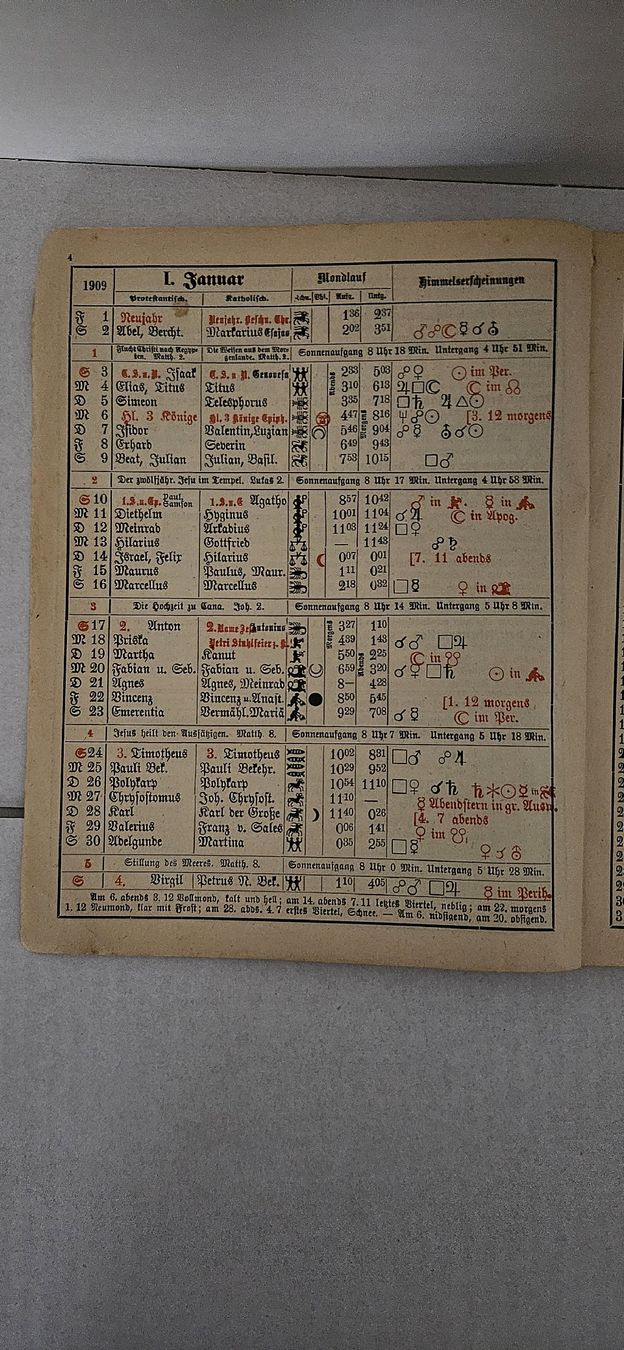 4
1909 I. Januar Mondlauf Himmelserscheinungen
Protestantisch. Katholisch. Aufg. Untg.
F 1 Neujahr Neujahr. Beschn. Chr. 1 36 2 37
S 2 Abel, Bercht. Markarius 2 02 3 51 ♂☍☾☿☌♁
1 Flucht Christi nach Aegypten. Matth. 2. Die Weisen aus dem Morgenlande. Matth. 2. Sonnenaufgang 8 Uhr 18 Min. Untergang 4 Uhr 51 Min.
S 3 C. S. n. N. Isaak C. S. n. N. Genovefa Abends 2 33 5 03 ☍♀ ☉ im Per.
M 4 Elias, Titus Titus 3 10 6 13 ♃□☾ ☾ im ☊
D 5 Simeon Telesphorus 3 35 7 18 □♄ ♃△☉
M 6 Hl. 3 Könige Hl. 3 Könige Epiph. Morgens 4 47 8 16 ♆☍☉ [3. 12 morgens
D 7 Isidor Valentin, Luzian 5 46 9 04 ☍☿ ♁☌☉
F 8 Erhard Severin 6 49 9 43
S 9 Beat, Julian Julian, Basil. 7 53 10 15 □♂
2 Der zwölfjähr. Jesu im Tempel. Lukas 2. Sonnenaufgang 8 Uhr 17 Min. Untergang 4 Uhr 58 Min.
S 10 1. S. n. Ep. Paul, Samson 1. S. n. E Agatho 8 57 10 42 ♂ in ☿ in
M 11 Diethelm Hyginus 10 01 11 04 ☌♃ ☾ in Apog.
D 12 Meinrad Arkadius 11 03 11 24 □♀
M 13 Hilarius Gottfried — 11 43 ☍♄
D 14 Israel, Felix Hilarius ☾ 0 07 0 01 [7. 11 abends
F 15 Maurus Paulus, Maur. 1 11 0 21
S 16 Marcellus Marcellus 2 18 0 32 □☿ ♀ in
3 Die Hochzeit zu Cana. Joh. 2. Sonnenaufgang 8 Uhr 14 Min. Untergang 5 Uhr 8 Min.
S 17 2. Anton 2. Antonius Morgens 3 27 1 10
M 18 Priska Petri Stuhlfeier z. R. 4 39 1 43 ☌♂ □♃
D 19 Martha Kanut 5 50 2 25 ☾ in ☋
M 20 Fabian u. Seb. Fabian u. Seb. 6 59 3 20 ☌♀ □♄ ☉ in
D 21 Agnes Agnes, Meinrad 8 — 4 28
F 22 Vincenz Vincenz u. Anast. ● 8 50 5 45 [1. 12 morgens
S 23 Emerentia Vermähl. Mariä 9 29 7 08 ☌☿ ☾ im Per.
4 Jesus heilt den Aussätzigen. Matth 8. Sonnenaufgang 8 Uhr 7 Min. Untergang 5 Uhr 18 Min.
S 24 3. Timotheus 3. Timotheus 10 02 8 31 □♂ ☍♃
M 25 Pauli Bek. Pauli Bekehr. 10 29 9 52
D 26 Polykarp Polykarp 10 54 11 10 □♀ ☌♄ ♄✶☉ ☿ in
M 27 Chrysostomus Joh. Chrysost. 11 10 — ☿ Abendstern in gr. Ausw.
D 28 Karl Karl der Große ☽ 11 40 0 26 [4. 7 abends
F 29 Valerius Franz v. Sales 0 06 1 41 ♀ im ☋
S 30 Adelgunde Martina 0 35 2 55 □☿ ♀☌♁
5 Stillung des Meeres. Matth. 8. Sonnenaufgang 8 Uhr 0 Min. Untergang 5 Uhr 28 Min.
S 4. Virgil Petrus N. Bek. 1 10 4 05 ☍♂ □♃ ☿ im Perih.
Am 6. abends 3. 12 Vollmond, kalt und hell; am 14. abends 7. 11 letztes Viertel, neblig; am 22. morgens
1. 12 Neumond, klar mit Frost; am 28. abds. 4. 7 erstes Viertel, Schnee. — Am 6. nidsigend, am 20. obsigend.